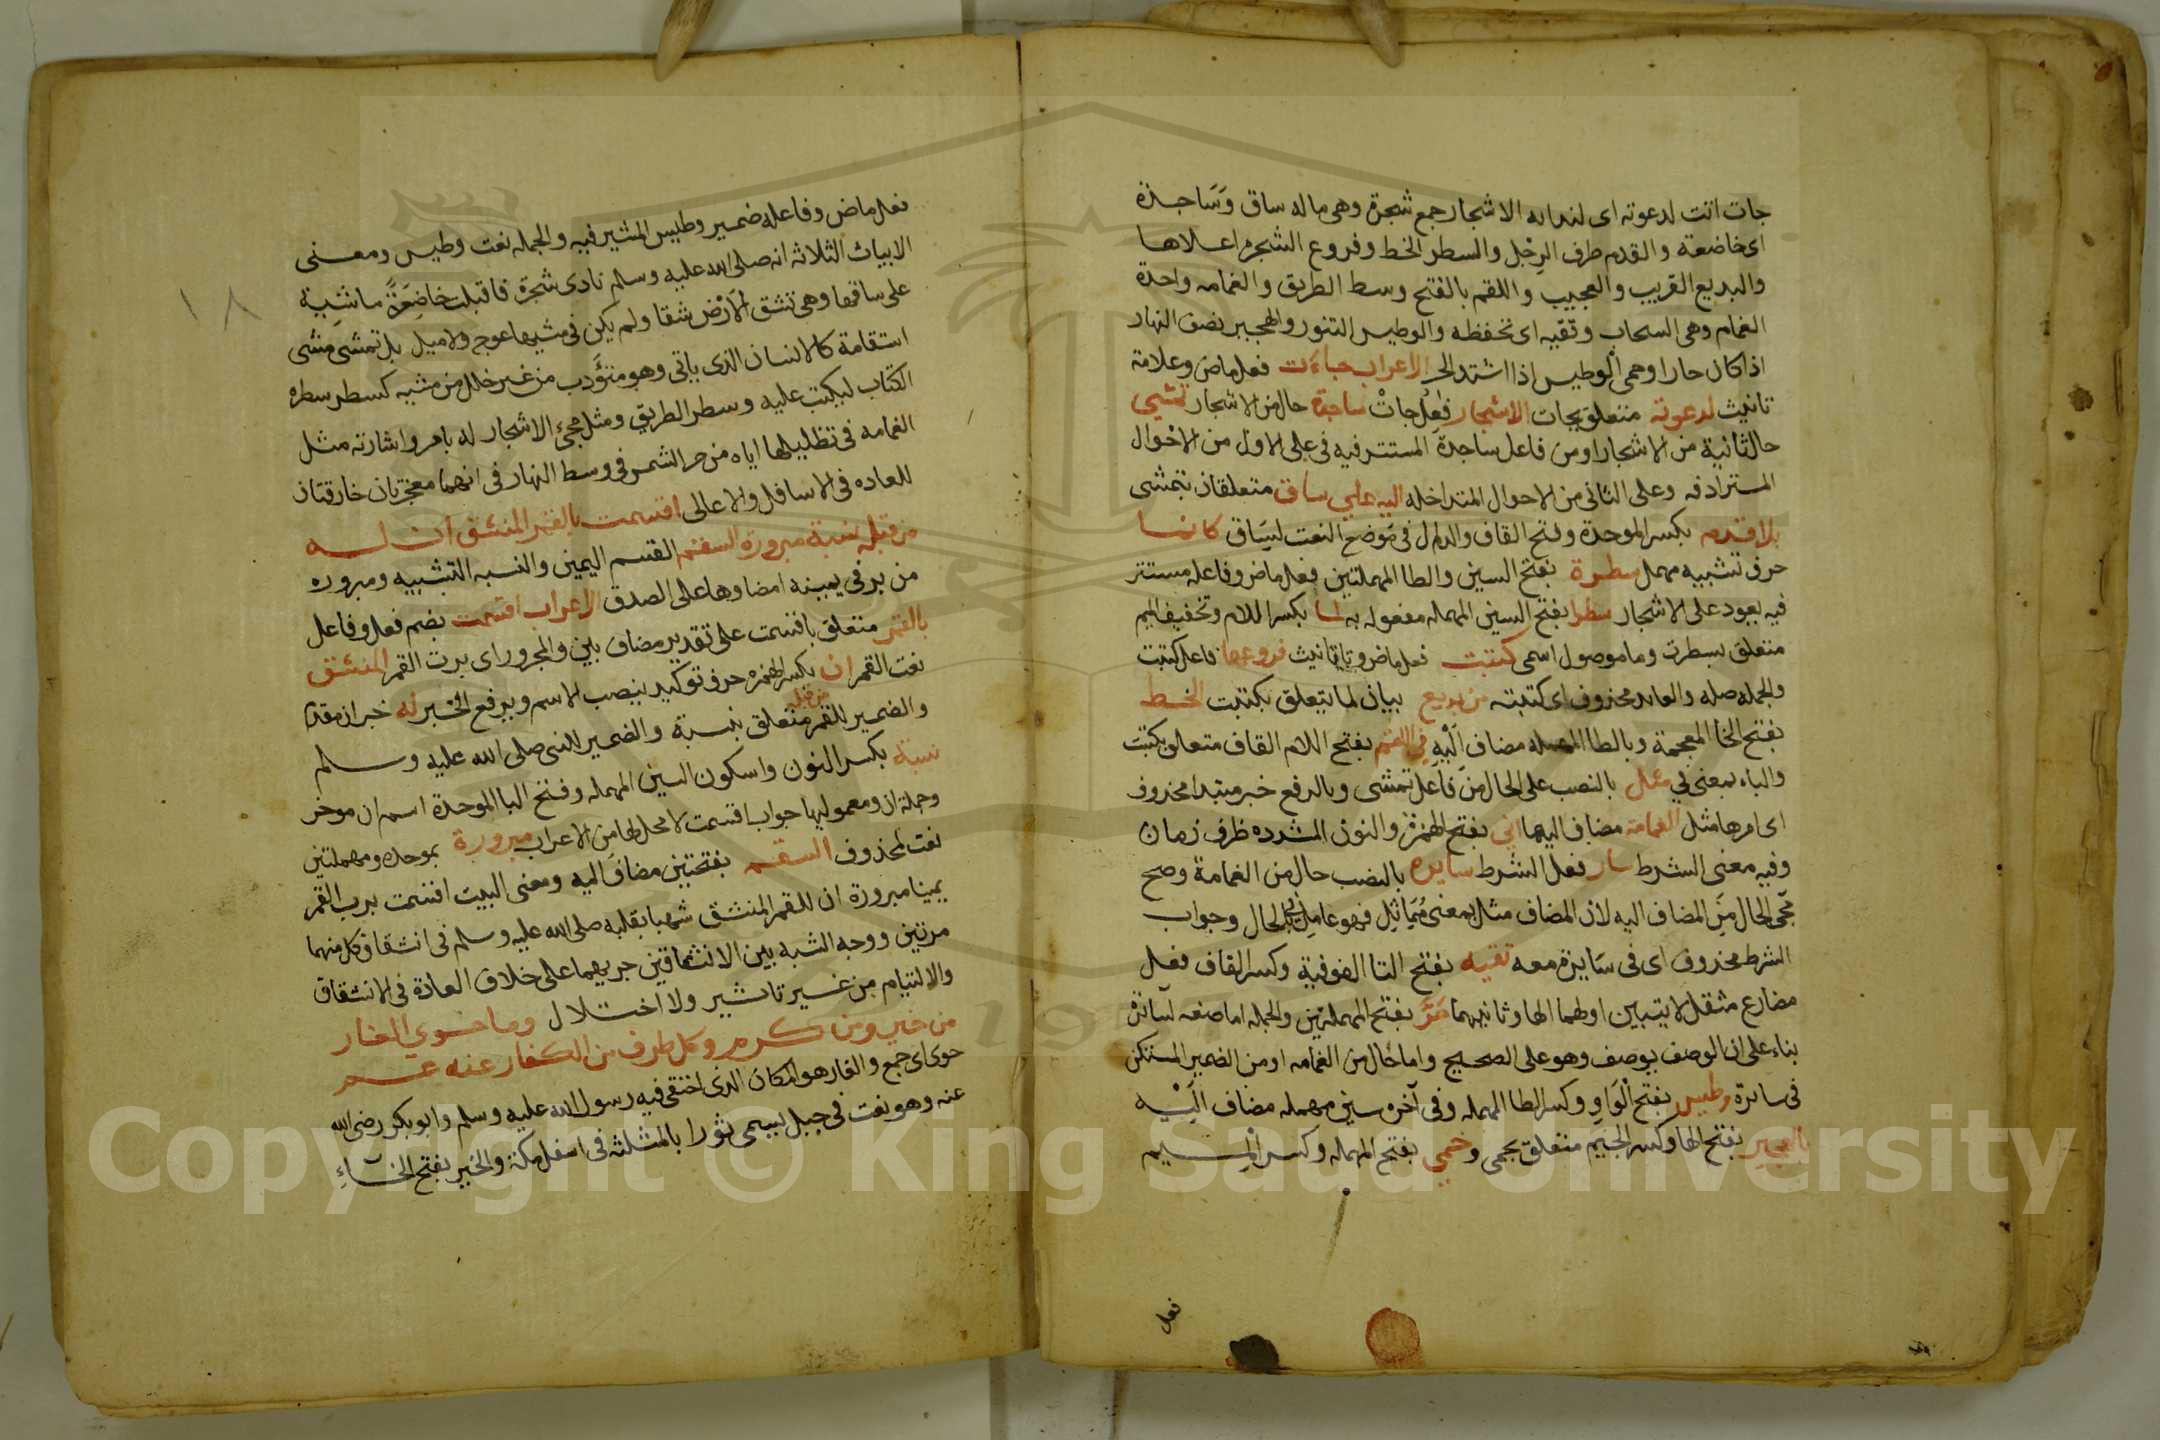 جات اتت لدعوته اى لندائه الاشجار جمع شجرة وهى ماله ساق وَسَاجدة
اى خاضعة والقدم طرف الرِجْل والسطر الخط وفروع الشجر اعلاها
والبديع القريب والعجيب واللقم بالفتح وسط الطريق والغمامه واحدة
الغمام وهى السحاب وتقيه اى تحفظه والوطيس التنور والهجير نصف النهار
اذا كان حارا وحمى الوطيس اذا اشتد الحر الاعراب جاءت فعل ماض وعلامة
تانيث لدعوته متعلق بجات الاشجار فاعِل جاتْ ساجدة حال من الاشجار تمشى
حال ثانية من الاشجار او من فاعل ساجدة المستتر فيه فى على الاول من الاحْوال
المترادفه وعلى الثانى من الاحوال المتداخله اليه على ساق متعلقان بتمشى
بلا قدم بكسر الموحدة وفتح القاف والدال فى مَوضع النعت لسَاق كانما
حرف تشبيه مهمل سطرة بفتح السين والطا المهملتين فعل ماض وفاعله مستتر
فيه يعود على الاشجار سطرا بفتح السين المهمله مفعول به لما بكسر اللام وتخفيف الميم
متعلق بسطرت وما موصول اسمى كتبت فعل ماض وتا تانيث فروعها فاعل كتبت
والجمله صله والعائد محذوف اى كتبته من بديع بيان لما يتعلق بكتبت الخط
بفتح الخا المعجمة وبالطا المهمله مضاف اليْهِ فى اللقم بفتح اللام القاف متعلق بكتبت
والباء بمعنى في مثل بالنصب على الحال من فاعل تمشى وبالرفع خبر مبتدا محذوف
اى امرها مثل الغمامة مضاف اليها انى بفتح الهمزة والنون المشدده ظرف زمان
وفيه معنى الشرط سار فعل الشرط سايره بالنصب حال من الغمامة وصح
مَجى الحال مِنَ المضاف اليه لان المضاف مثل بمعنى مُمَاثِل فهو عامِل فى الحال وجواب
الشرط محذوف اى فى سَايرة معه تقيه بفتح التا الفوقية وكسر القاف فعل
مضارع مثقل لاثنين اولهما الها وثانيهما حَرَّ بفتح المهملتين والجمله اما صفه لسائرة
بناء على ان الوصف يوصف وهو على الصحيح واما حَال من الغمامه او من الضمير المستكن
فى سائرة وطيس بفتح الْوَاوِ وكسر الطا المهمله وفى آخره سين مهمله مضاف الَيْه
للهجير بفتح الها وكسر الجيم متعلق بحمى وحمى بفتح المهمله وكسر الْميم
فعل
فعل ماض وفاعله ضمير وطيس المشير فيه والجمله نعت وطيس ومعنى
الابيات الثلاثه انه صلى الله عليه وسلم نادى شجرة فاقبلت خاضِعَةً ماشِية
على ساقها وهى تشق الاَرْض شقا ولم يكن فى مشيها عوج ولا ميل بل تمشى مشى
استقامة كالانسان الذى ياتى وهو متؤَدب من غير خلل من مشيه كسطر سطره
الكتاب ليكتب عليه وسطر الطريق ومثل مجئ الاشجار له بامر واشارته مثل
الغمامه فى تظليلها اياه من حر الشمس فى وسط النهار فى انهما معجزتان خارقتان
للعاده فى الاسافل والاعالى اقسمت بالقمر المنشق ان له
من قبله نسبة مبرورة القسم القسم اليمين والنسبه التشبيه ومبروره
من بر فى يمينه امضاوها على الصدق الاعراب اقسمت بضم فعل وفاعل
بالقمر متعلق باقسمت على تقدير مضاف بين والمجرور اى برت القمر المنشق
نعت القمر ان بكسر الهمزه حرف توكيد ينصب الاسم ويرفع الخبر له خبر ان مقدم
والضمير للقمر من قبله متعلق بنسبة والضمير للنبى صلى الله عليه وسلم
نسبة بكسر النون واسكون السين المهمله وفتح البا الموحدة اسم ان موخر
وجملة ان ومعموليها جواب اقسمت لا محل لها من الاعراب مبرورة بموحده ومهملتين
نعت لمحذوف القسم بفتحتين مضاف اليه ومعنى البيت اقسمت برب القمر
يمينا مبرورة ان للقمر المنشق شبها بقلبه صلى الله عليه وسلم فى انشقاق كل منهما
مرتين ووجه الشبه بين الانشقاقين جريهما على خلاف العادة فى الانشقاق
والالتيام من غير تاثير ولا اختلال وما حوى الغار
من خير ومن كرم وكل طرف من الكفار عنه عمى
حوى اى جمع والغار هو المكان الذى اختفى فيه رسول الله عليه وسلم وابو بكر رضى الله
عنه وهو نعت فى جبل يسمى ثورا بالمثلثه فى اسفل مكة والخير بفتح الخاءِ
١٨